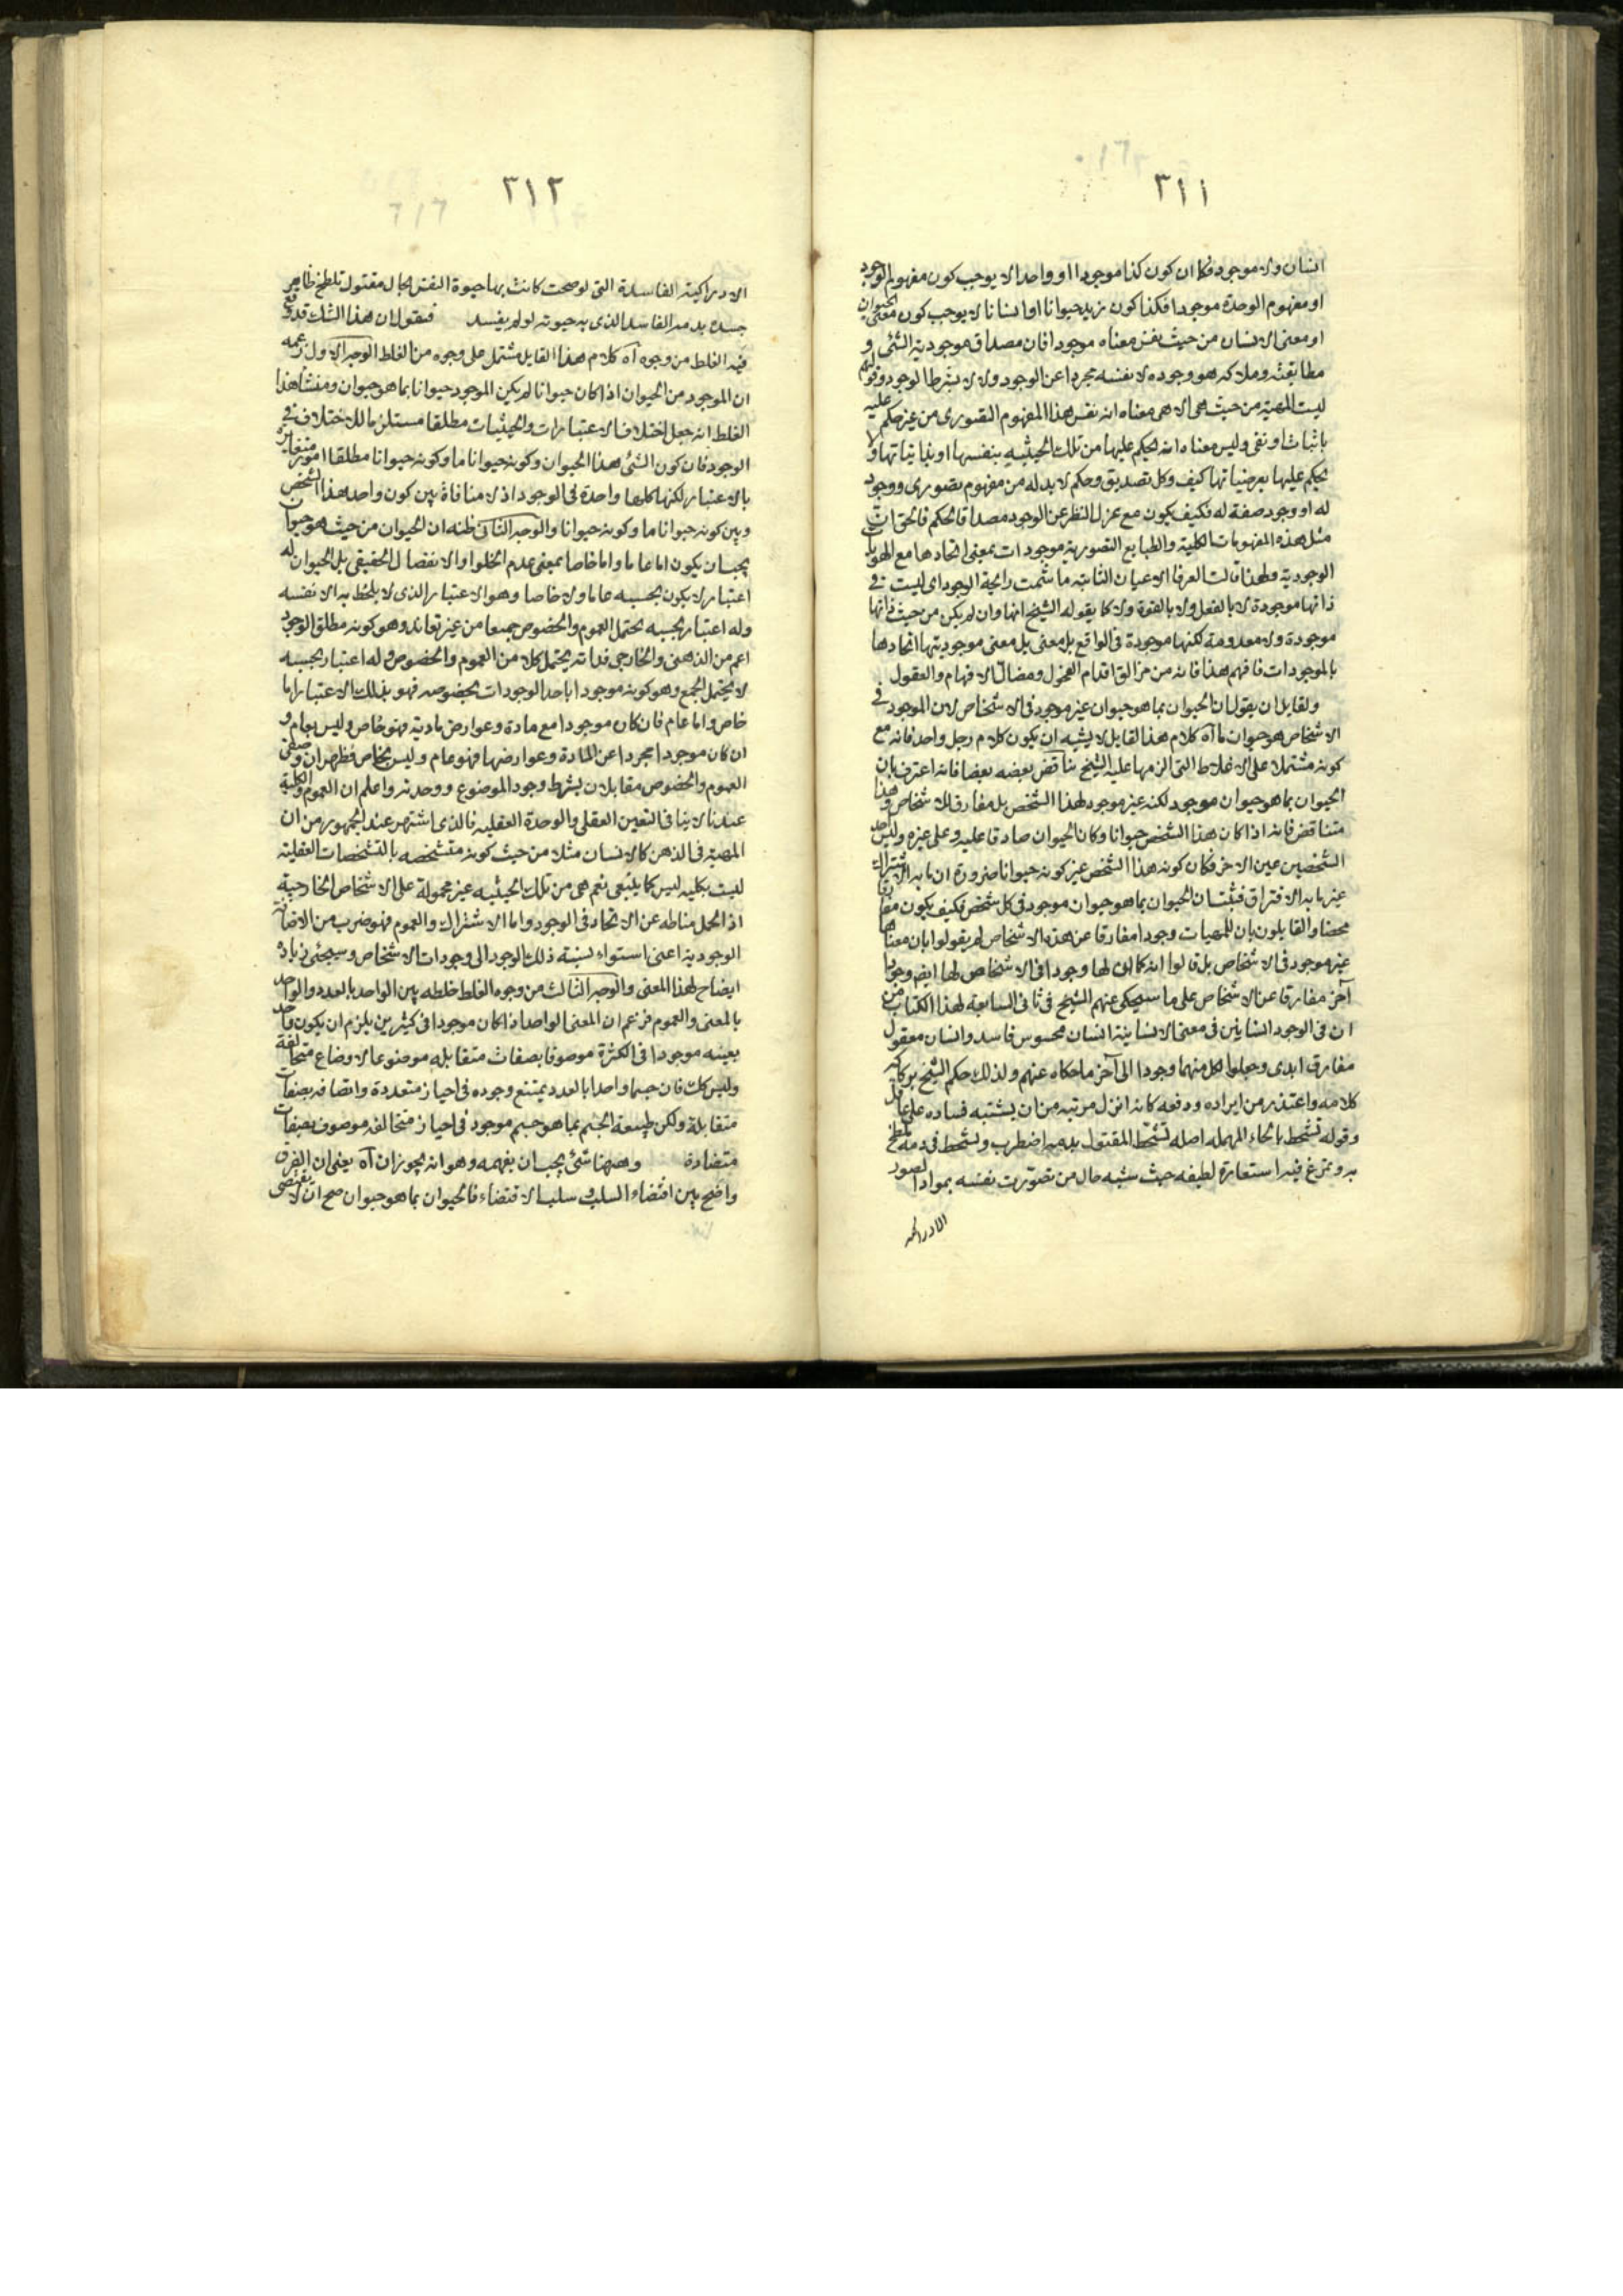 ٣١١
انسان ولا موجود فكما ان كون كذا موجودا او واحدا لا يوجب كون مفهوم الوجود
او مفهوم الوحدة موجودا فكذا كون زيد حيوانا او انسانا لا يوجب كون معنى الحيوان
او معنى الانسان من حيث نفس معناه موجودا فان مصداق موجودية الشئ و
مطابقته وملاكه هو وجوده لا نفسه مجردا عن الوجود ولا لا بشرط الوجود وقولهم
ليست المهية من حيث هى الا هى معناه انه نفس هذا المفهوم التصورى من غير حكم عليه
باثبات او نفى وليس معناه انه يحكم عليها من تلك الحيثية بنفسها او بذاتياتها ولا
يحكم عليها بعرضياتها كيف وكل تصديق وحكم لا بد له من مفهوم تصورى ووجود
له او وجود صفة له فكيف يكون مع عزل النظر عن الوجود مصداقا لحكم فالحق ان
مثل هذه المفهومات الكلية والطبايع التصورية موجودات بمعنى اتحادها مع الهويات
الوجودية ولهذا قالت العرفا الاعيان الثابتة ما شمت رائحة الوجود اى ليست فى
ذاتها موجودة لا بالفعل ولا بالقوة ولا كما يقوله الشيخ انها وان لم يكن من حيث ذاتها
موجودة ولا معدومة لكنها موجودة فى الواقع بل معنى بل معنى موجوديتها اتحادها
بالموجودات فافهم هذا فانه من مزالق اقدام الفحول ومضال الافهام والعقول
ولقايل ان يقول ان الحيوان بما هو حيوان غير موجود فى الاشخاص لان الموجود فى
الاشخاص هو حيوان ما آه كلام هذا القايل لا يشبه ان يكون كلام رجل واحد فانه مع
كونه مشتملا على الاغلاط التى الزمها عليه الشيخ يناقض بعضه بعضا فانه اعترف بان
الحيوان بما هو حيوان موجود لكنه غير موجود لهذا الشخص بل مفارق للاشخاص وهذا
متناقض فانه اذا كان هذا الشخص حيوانا وكان الحيوان صادقا عليه وعلى غيره وليس احد
الشخصين عين الاخر فكان كونه هذا الشخص غير كونه حيوانا ضرورة ان ما به الاشتراك
غير ما به الافتراق فثبت ان الحيوان بما هو حيوان موجود فى كل شخص فكيف يكون مفارقا
محضا والقايلون بان للمهيات وجودا مفارقا عن هذه الاشخاص لم يقولوا بان معناها
غير موجود فى الاشخاص بل قالوا انه كما ان لها وجودا فى الاشخاص لها ايضا وجودا
آخر مفارقا عن الاشخاص على ما سيحكى عنهم الشيخ فى ثانى السابعة لهذا الكتاب من
ان فى الوجود انسانين فى معنى الانسانية انسان محسوس فاسد وانسان معقول
مفارق ابدى وجعلوا لكل منهما وجودا الى آخر ما حكاه عنهم ولذلك حكم الشيخ بركاكة
كلامه واعتذر من ايراده ودفعه كانه انزل مرتبة من ان يشتبه فساده على عاقل
وقوله تشحط بالحاء المهملة اصله تشحّط المقتول بدمه اضطرب وتشحط فى دمه تلطخ
به وتمرغ فيه استعارة لطيفه حيث شبه حال من تصوّرت نفسه بمواد الصور
الادراكية
٣١٢
الادراكية الفاسدة التى لو صحت كانت بها حيوة النفس بحال مقتول تلطخ ظاهر
جسده بدمه الفاسد الذى به حيوته لو لم يفسد فنقول ان هذا الشك قد وقع
فيه الغلط من وجوه آه كلام هذا القايل مشتمل على وجوه من الغلط الوجه الاول زعمه
ان الموجود من الحيوان اذا كان حيوانا لم يكن الموجود حيوانا بما هو حيوان ومنشأ هذا
الغلط انه جعل اختلاف الاعتبارات والحيثيات مطلقا مستلزما للاختلاف فى
الوجود فان كون الشئ هذا الحيوان وكونه حيوانا ما وكونه حيوانا مطلقا امور متغايرة
بالاعتبار لكنها كلها واحدة فى الوجود اذ لا منافاة بين كون واحد هذا الشخص
وبين كونه حيوانا ما وكونه حيوانا والوجه الثانى ظنه ان الحيوان من حيث هو حيوان
يجب ان يكون اما عاما واما خاصا بمعنى عدم الخلو او الانفصال الحقيقى بل الحيوان له
اعتبار لا يكون بحسبه عاما ولا خاصا وهو الاعتبار الذى لا يلحظ به الا نفسه
وله اعتبار بحسبه يحتمل العموم والخصوص جميعا من غير تعاند وهو كونه مطلق الوجود
اعم من الذهنى والخارجى فذاته يحتمل كلا من العموم والخصوص وله اعتبار بحسبه
لا يحتمل الجمع وهو كونه موجودا باحد الوجودات بخصوصه فهو بذلك الاعتبار اما
خاص واما عام فان كان موجودا مع مادة وعوارض مادية فهو خاص وليس بعام و
ان كان موجودا مجردا عن المادة وعوارضها فهو عام وليس بخاص فظهر ان وصفى
العموم والخصوص مقابلان بشرط وجود الموضوع ووحدته واعلم ان العموم والكلية
عندنا لا ينافى التعين العقلى والوحدة العقلية فالذى اشتهر عند الجمهور من ان
المهية فى الذهن كالانسان مثلا من حيث كونه متشخصه بالتشخصات العقلية
ليست بكلية ليس كما ينبغى نعم هى من تلك الحيثية غير محمولة على الاشخاص الخارجية
اذ الحمل مناطه عن الاتحاد فى الوجود واما الاشتراك والعموم فهو ضرب من الاضافة
الوجودية اعنى استواء نسبة ذلك الوجود الى وجودات الاشخاص وسيجئ زيادة
ايضاح لهذا المعنى والوجه الثالث من وجوه الغلط خلطه بين الواحد بالعدد والواحد
بالمعنى والعموم فزعم ان المعنى الواحد اذا كان موجودا فى كثيرين يلزم ان يكون واحد
بعينه موجودا فى الكثرة موصوفا بصفات متقابله موضوعا لاوضاع متخالفة
وليس كك فان جسما واحدا بالعدد يمتنع وجوده فى احياز متعددة واتصافه بصفات
متقابلة ولكن طبيعة الجسم بما هو جسم موجود فى احياز متخالفة موصوف بصفات
متضادة وههنا شئ يجب ان يفهمه وهو انه يجوز ان آه يعنى ان الفرق
واضح بين اقتضاء السلب وسلب الاقتضاء فالحيوان بما هو حيوان صح ان لا يقتضى